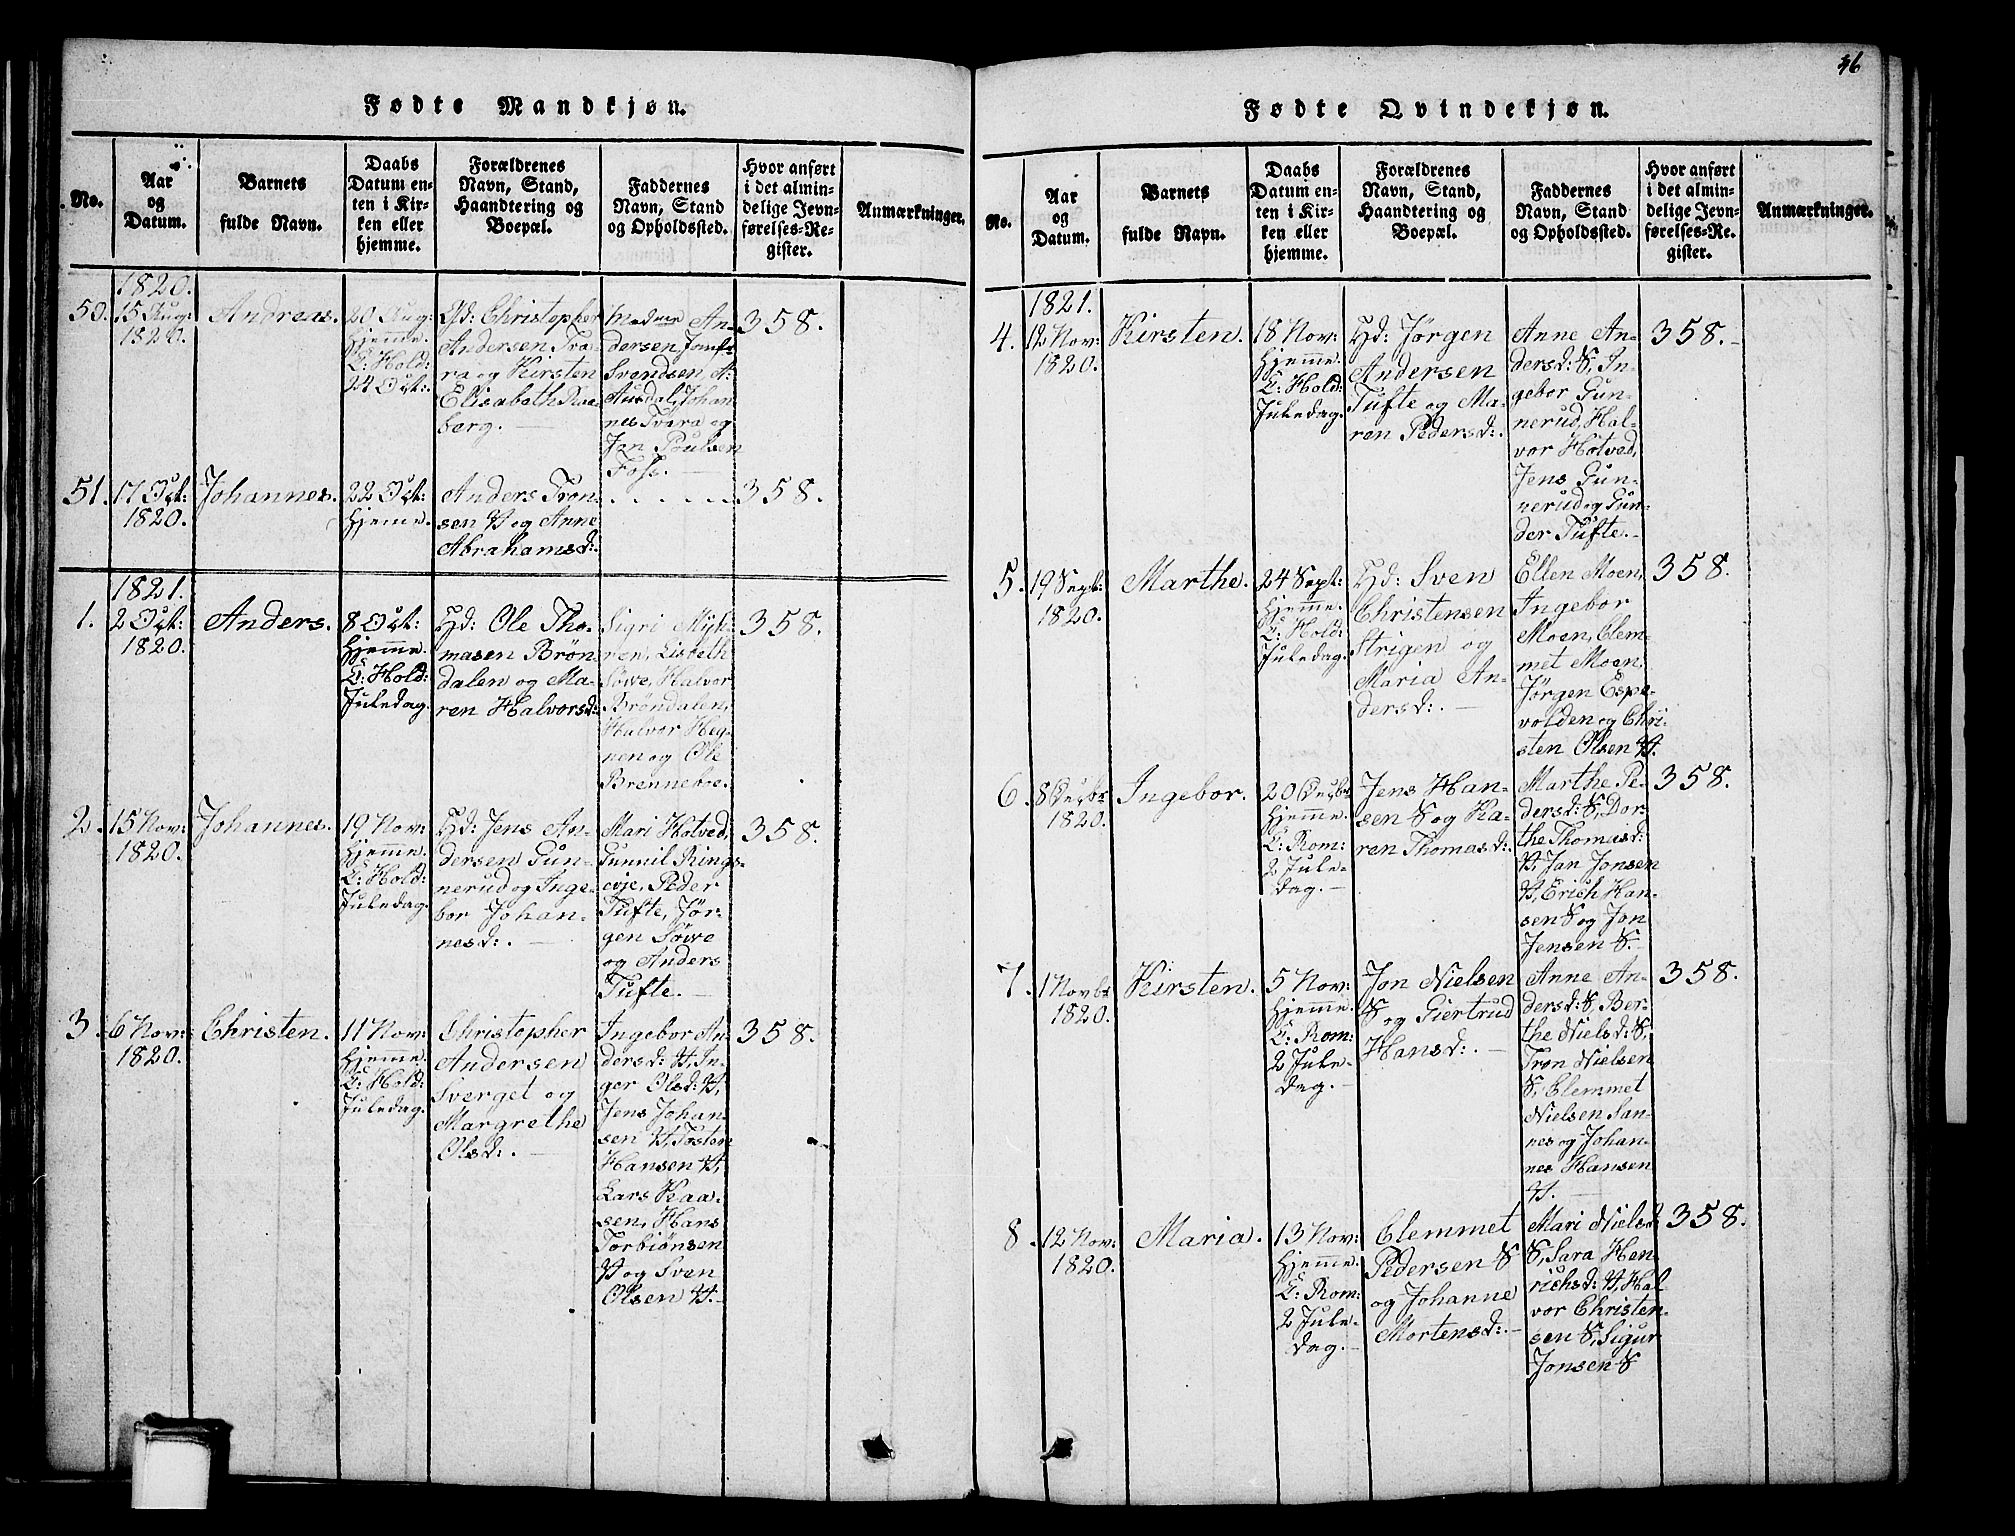 Fødte Mandkjøn.
No.
Aar
og
Datum.
Barnets
fulde Navn.
Daabs
Datum en-
ten i Kir-
ken eller
hjemme.
Forældrenes
Navn, Stand,
Haandtering og
Boepæl.
Faddernes
Navn, Stand
og Opholdssted.
Hvor anført
i det almin-
delige Jevn-
førelses-Re-
gister.
Anmærkninger.
1820.
50.
15 Aug:
1820.
Andreas.
20 Aug:
hjemme.
E: Hold:
24 Oct:
Gd: Christopher
Andersen Tra-
ra og Kirsten
Elisabeth Raa-
berg.
Madme An-
dersen, Jomfr:
Svendsen, A:
Ausdal, Johan-
nes Tvara og
Jon Poulsen
Foss.
358.
51.
17 Oct:
1820.
Johannes.
22 Oct:
hjeme.
Anders Tron-
sen H og Anne
Abrahamsd:.
358.
1821.
1.
2 Oct:
1820.
Anders.
8 Oct:
hjemme.
E: Hold:
Juledag.
Hd: Ole Tho-
masen Brön-
dalen og Ma-
ren Halvorsd:
Sigri Myh-
ren, Lisbeth
Söwe, Halvor
Bröndalen,
Halvor Heg-
nen og Ole
Brenneboe.
358.
2.
15 Nov:
1820.
Johannes.
19 Nov:
hjemme.
E: Hold:
Juledag.
Hd: Jens An-
dersen Gun-
nerud og Inge-
bor Johan-
nesd:.
Mari Hotved,
Gunnil Rings-
evje, Peder
Tufte, Jör-
gen Söwe
og Anders
Tufte.
358.
3.
6 Nov:
1820.
Christen.
11 Nov:
hjemme.
E: Hold:
Juledag.
Christopher
Andersen
Sverget og
Margrethe
Olsd:.
Ingebor An-
dersd: H, In-
ger Olsd: H,
Jens Johan-
sen H, Tosten
Hansen H,
Lars Kaa-
sen, Hans
Torbiönsen
H og Sven
Olsen H.
358.
36
Fødte Qvindekjøn.
No.
Aar
og
Datum.
Barnets
fulde Navn.
Daabs
Datum en-
ten i Kir-
ken eller
hjemme.
Forældrenes
Navn, Stand,
Haandtering og
Boepæl.
Faddernes
Navn, Stand
og Opholdssted.
Hvor anført
i det almin-
delige Jevn-
førelses-Re-
gister.
Anmærkninger.
1821.
4.
12 Nov:
1820.
Kirsten.
18 Nov:
hjemme.
E: Hold:
Juledag.
Hd: Jörgen
Andersen
Tufte og Ma-
ren Pedersd:.
Anne An-
dersd: S, In-
gebor Gun-
nerud, Hal-
vor Hotved,
Jens Gun-
nerud og Gun-
der Tufte.
358.
5.
19 Sept:
1820.
Marthe.
24 Sept:
hjemme.
E: Hold:
Juledag.
Hd: Sven
Christensen
Strigen og
Maria An-
dersd:.
Ellen Moen,
Ingebor
Moen, Clem-
met Moen,
Jörgen Espe-
volden og Chri-
sten Olsen H.
358.
6.
8 Decbr
1820.
Ingebor.
20 Decbr
hjemme.
E: Rom:
2 Jule-
dag.
Jens Han-
sen S og Ka-
ren Thomasd:.
Marthe Pe-
dersd: S, Dor-
the Thomasd:
H, Jan Jonsen
H, Erich Han-
sen S og Jon
Jensen S.
358.
7.
1 Novbr
1820.
Kirsten.
5 Nov:
hjemme.
E: Rom:
2 Jule-
dag.
Jon Nielsen
S og Giertrud
Hansd:.
Anne An-
dersd: S, Ber-
the Nielsd: S,
Tron Nielsen
S, Clemmet
Nielsen San-
nes og Johan-
nes Hansen
H.
358.
8.
12 Nov:
1820.
Maria.
13 Nov:
hjemme.
E: Rom:
2 Jule-
dag.
Clemmet
Pedersen S
og Johanne
Mortensd:.
Mari Nielsd:
S, Sara Hen-
richsd: H, Hal-
vor Christen-
sen S, Sigur
Jonsen S
358.